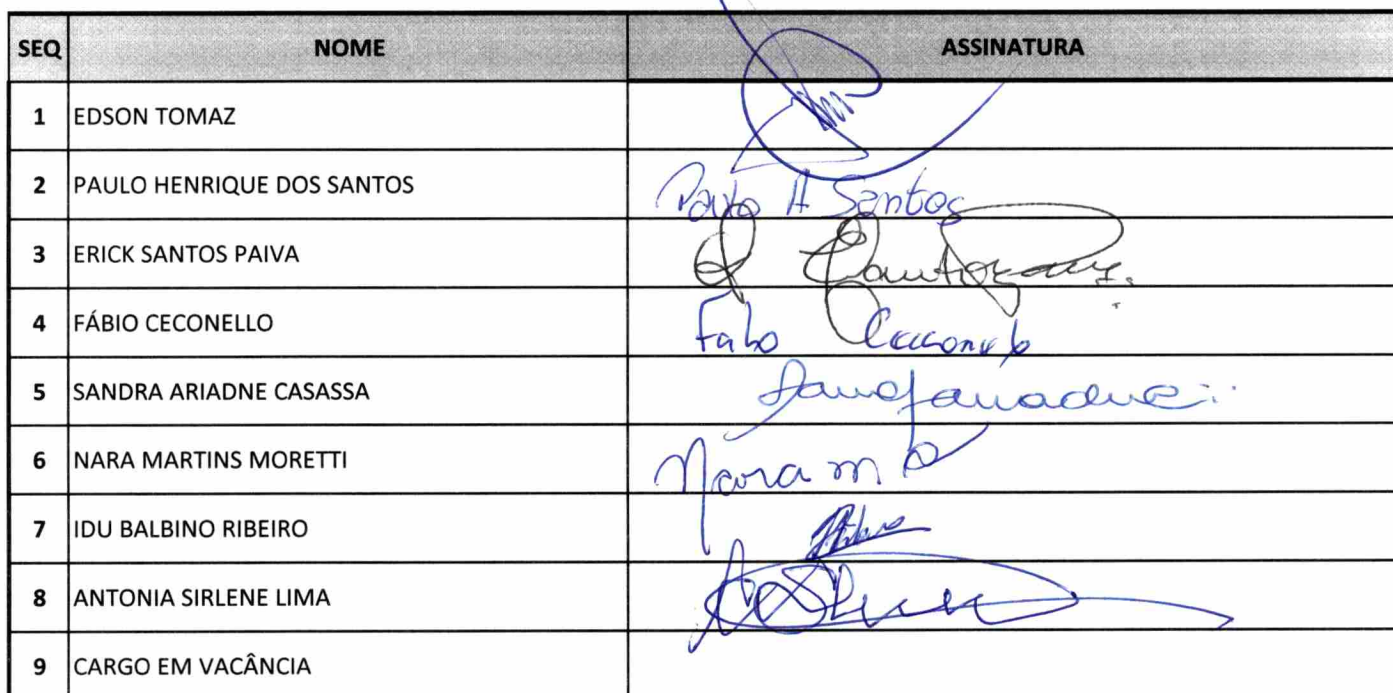 SEQ NOME ASSINATURA
1 EDSON TOMAZ
2 PAULO HENRIQUE DOS SANTOS Paulo H Santos
3 ERICK SANTOS PAIVA
4 FÁBIO CECONELLO Fabio Ceconello
5 SANDRA ARIADNE CASASSA
6 NARA MARTINS MORETTI Nara m
7 IDU BALBINO RIBEIRO
8 ANTONIA SIRLENE LIMA
9 CARGO EM VACÂNCIA